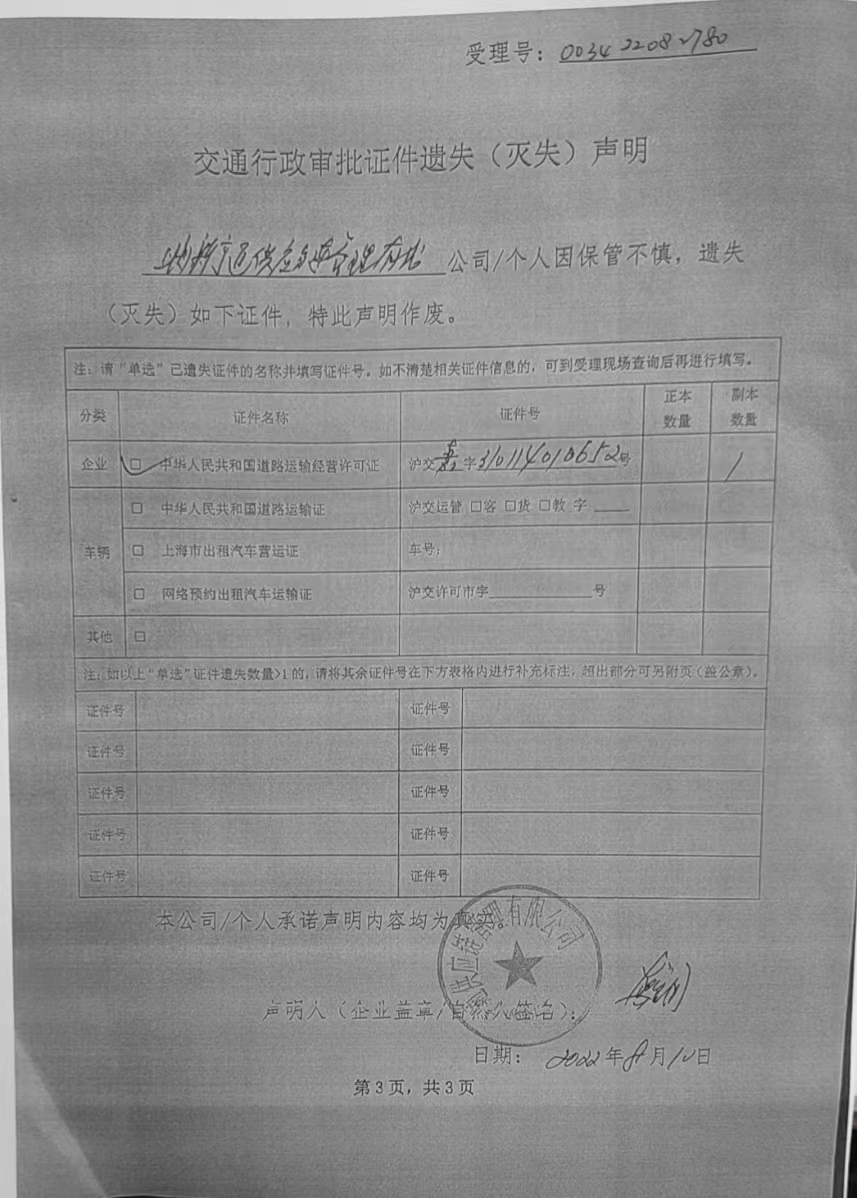 受理号：003422082780
交通行政审批证件遗失（灭失）声明
供应链管理有限 公司/个人因保管不慎，遗失
（灭失）如下证件，特此声明作废。
注：请“单选”已遗失证件的名称并填写证件号。如不清楚相关证件信息的，可到受理现场查询后再进行填写。
分类 证件名称 证件号 正本数量 副本数量
企业 □ 中华人民共和国道路运输经营许可证 沪交嘉字310114010652号 1
车辆 □ 中华人民共和国道路运输证 沪交运管 □客 □货 □教 字
□ 上海市出租汽车营运证 车号：
□ 网络预约出租汽车运输证 沪交许可市字 号
其他 □
注：如以上“单选”证件遗失数量>1的，请将其余证件号在下方表格内进行补充标注，超出部分可另附页（盖公章）。
证件号 证件号
证件号 证件号
证件号 证件号
证件号 证件号
证件号 证件号
本公司/个人承诺声明内容均为真实。
供应链管理有限公司
声明人（企业盖章/自然人签名）：
日期： 2022年8月10日
第3页，共3页